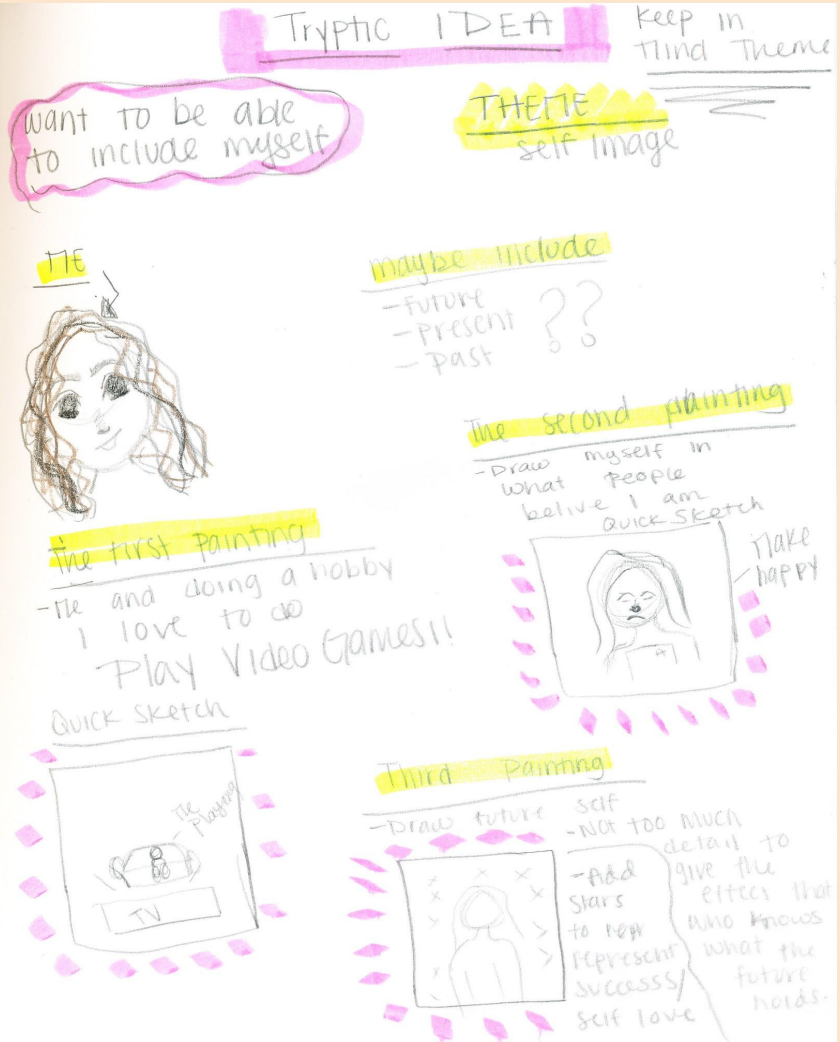 Tryptic IDEA
Keep in
Mind Theme
want to be able
to include myself
THEME
self Image
ME
maybe include
- Future
- Present
- Past
??
The second painting
- Draw myself in
what People
belive I am
Quick Sketch
Make
happy
The First Painting
- Me and doing a hobby
I love to do
Play Video Games!!
Quick Sketch
Me
Playing
TV
Third Painting
- Draw future self
- Not too much
detail to
give the
effect that
who knows
what the
future
holds.
- Add
Stars
to rep
represent
successs/
self love